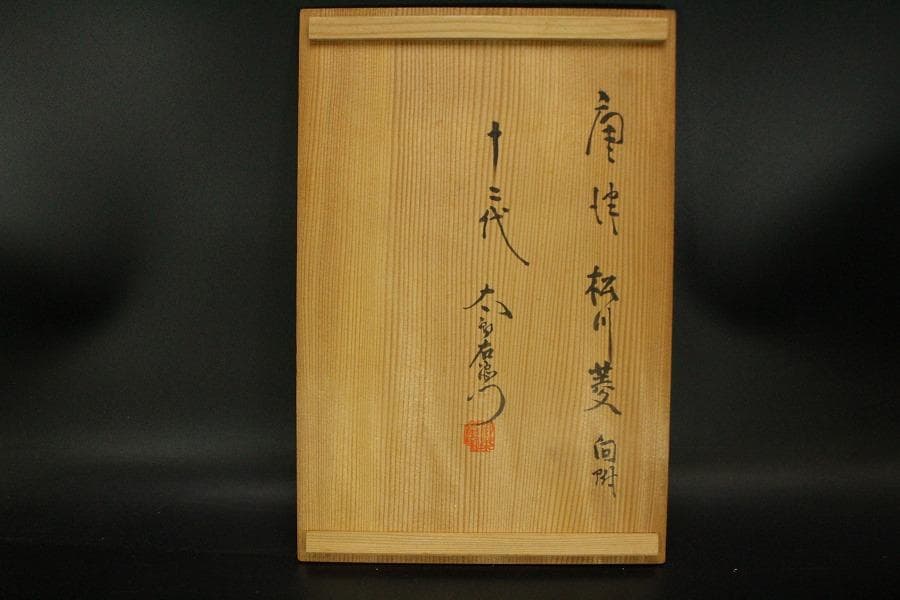 唐津 松川菱 向附
十二代 太郎右衛門